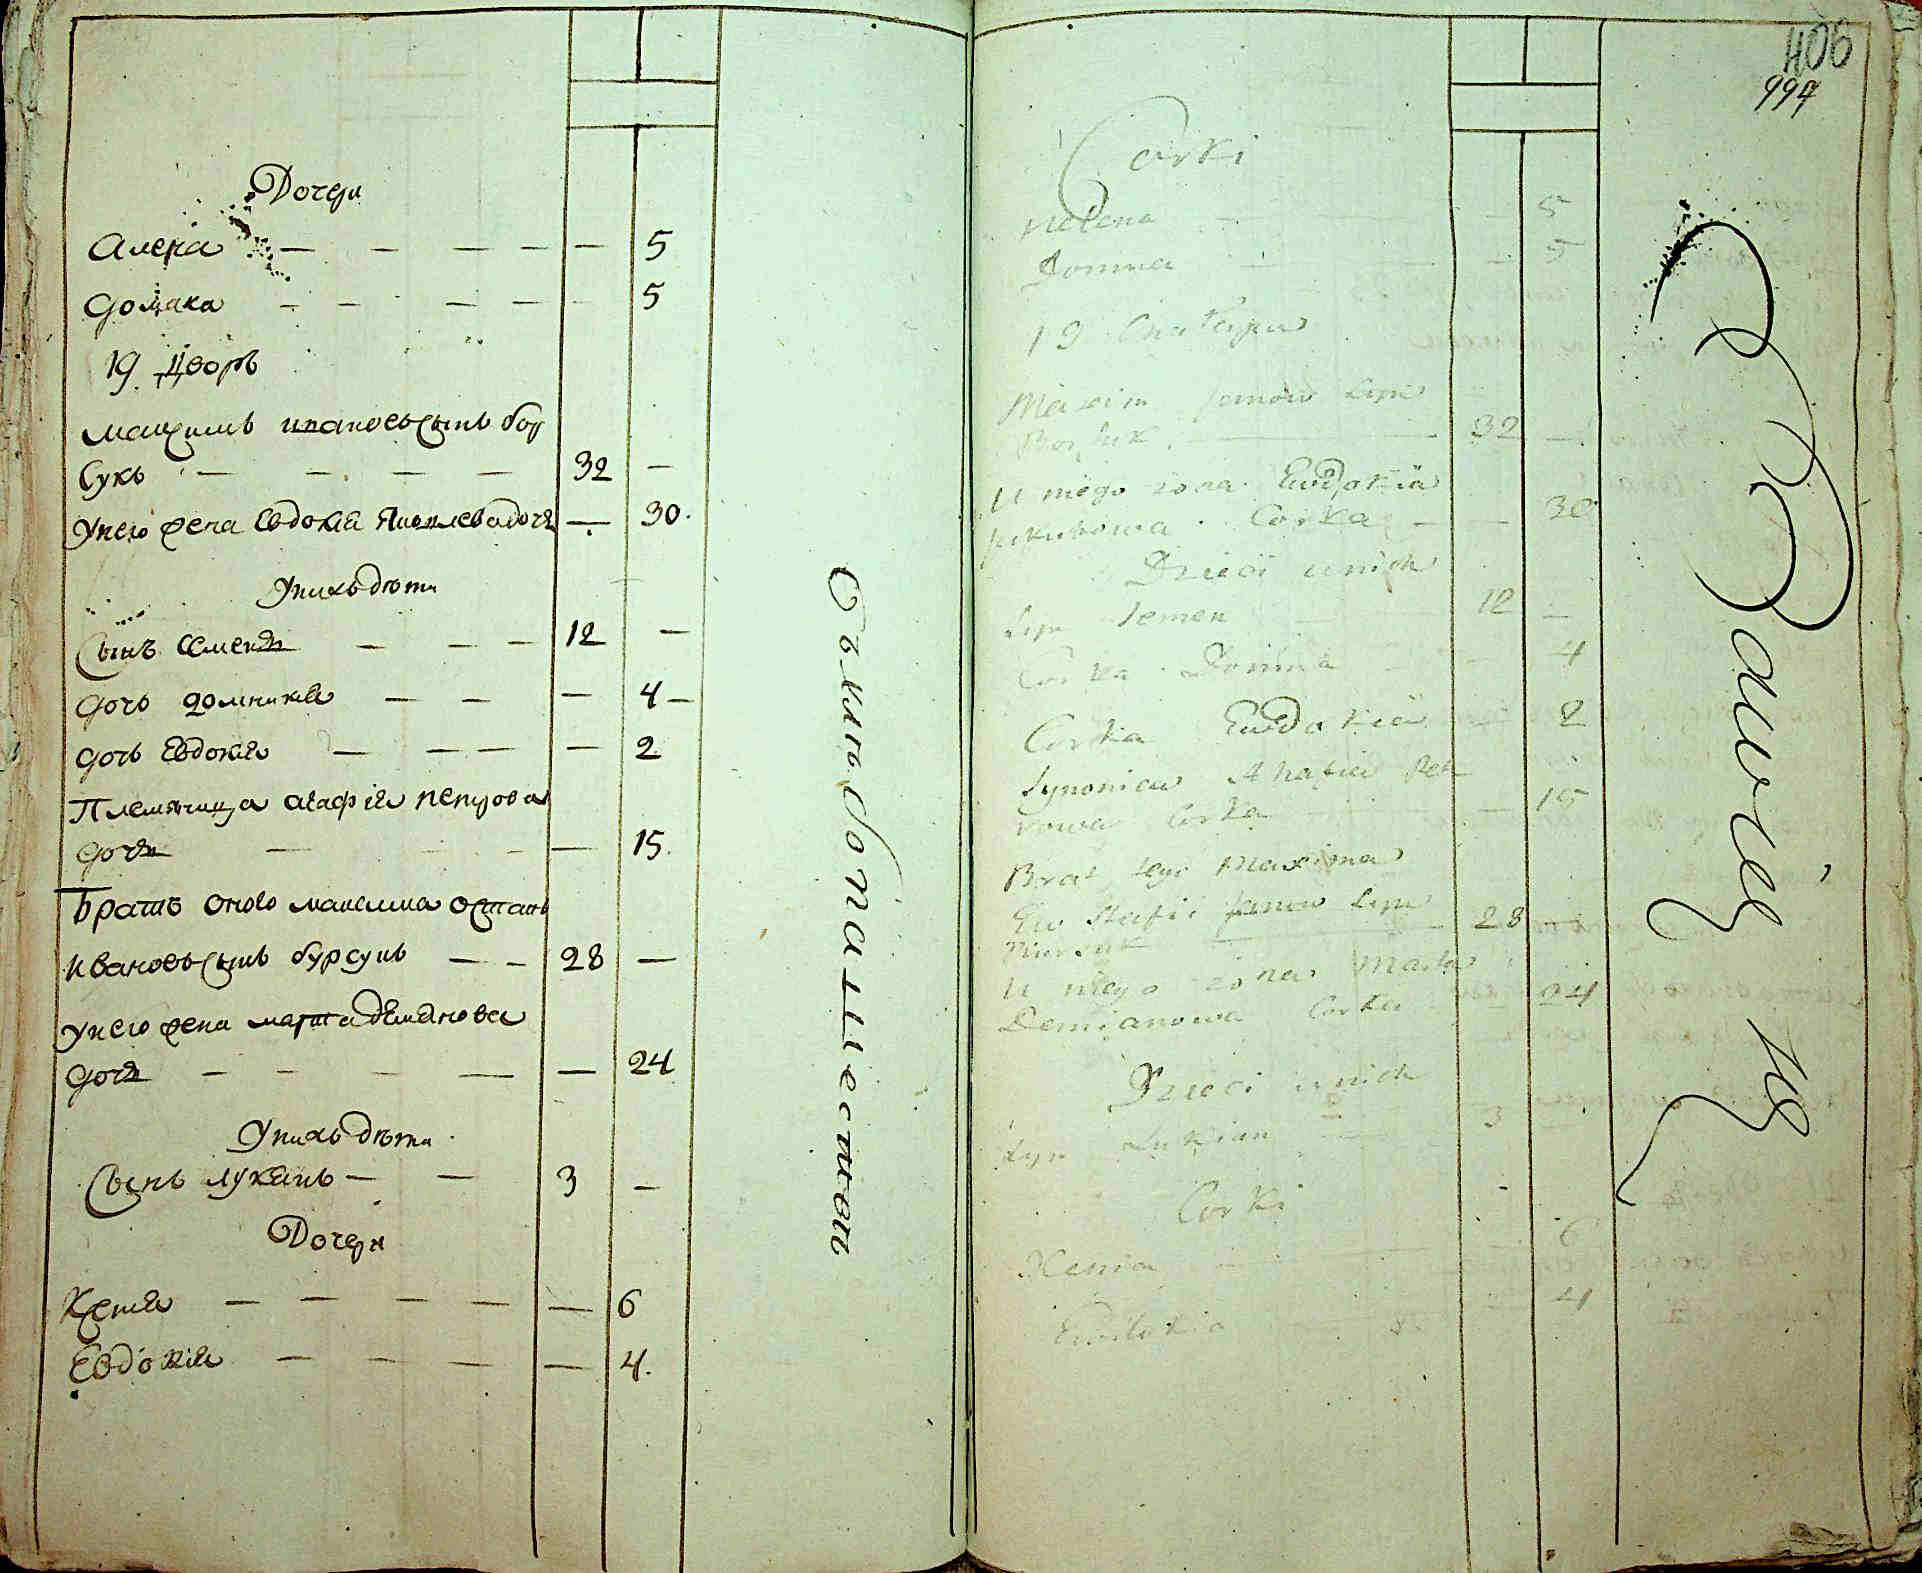 Дочери
Алена — — — — — 5
домака — — — — — 5
19 дворъ
Максимъ ивановъ сынъ бор
сукъ — — — — 32 —
Унего жена Евдокия Яковлева дочь — 30.
Унихъ дѣти
Сынъ семенъ — — — 12 —
дочь домникия — — — 4 —
дочь Евдокия — — — — 2
Племянница агафия петрова
дочь — — — — 15.
Братъ оного максима остапъ
ивановъ сынъ бурсукъ — — 28 —
Унего жена марта демянова
дочь — — — — — 24
Унихъ дѣти
Сынъ лукянъ — — 3 —
Дочери
Ксения — — — — — 6
Евдокия — — — — 4.
406
997
Corki
Helena — — 5
Domna — — 5
19
Maxim Janow Syn
32 —
U niego zona Ewdokia
Jakubowa Corka — — 30
Dzieci u nich
Syn Semen 12 —
Corka Domna — 4
Corka Ewdokia — 2
Synowica Ahafia Pet
rowa Corka — 15
Brat tego Maxima
Ewstafii Janow Syn 28 —
U niego zona Marta
Demianowa Corka — 24
Dzieci u nich
Syn Lukian — 3 —
Corki
Xenia — — 6
Ewdokia — 4